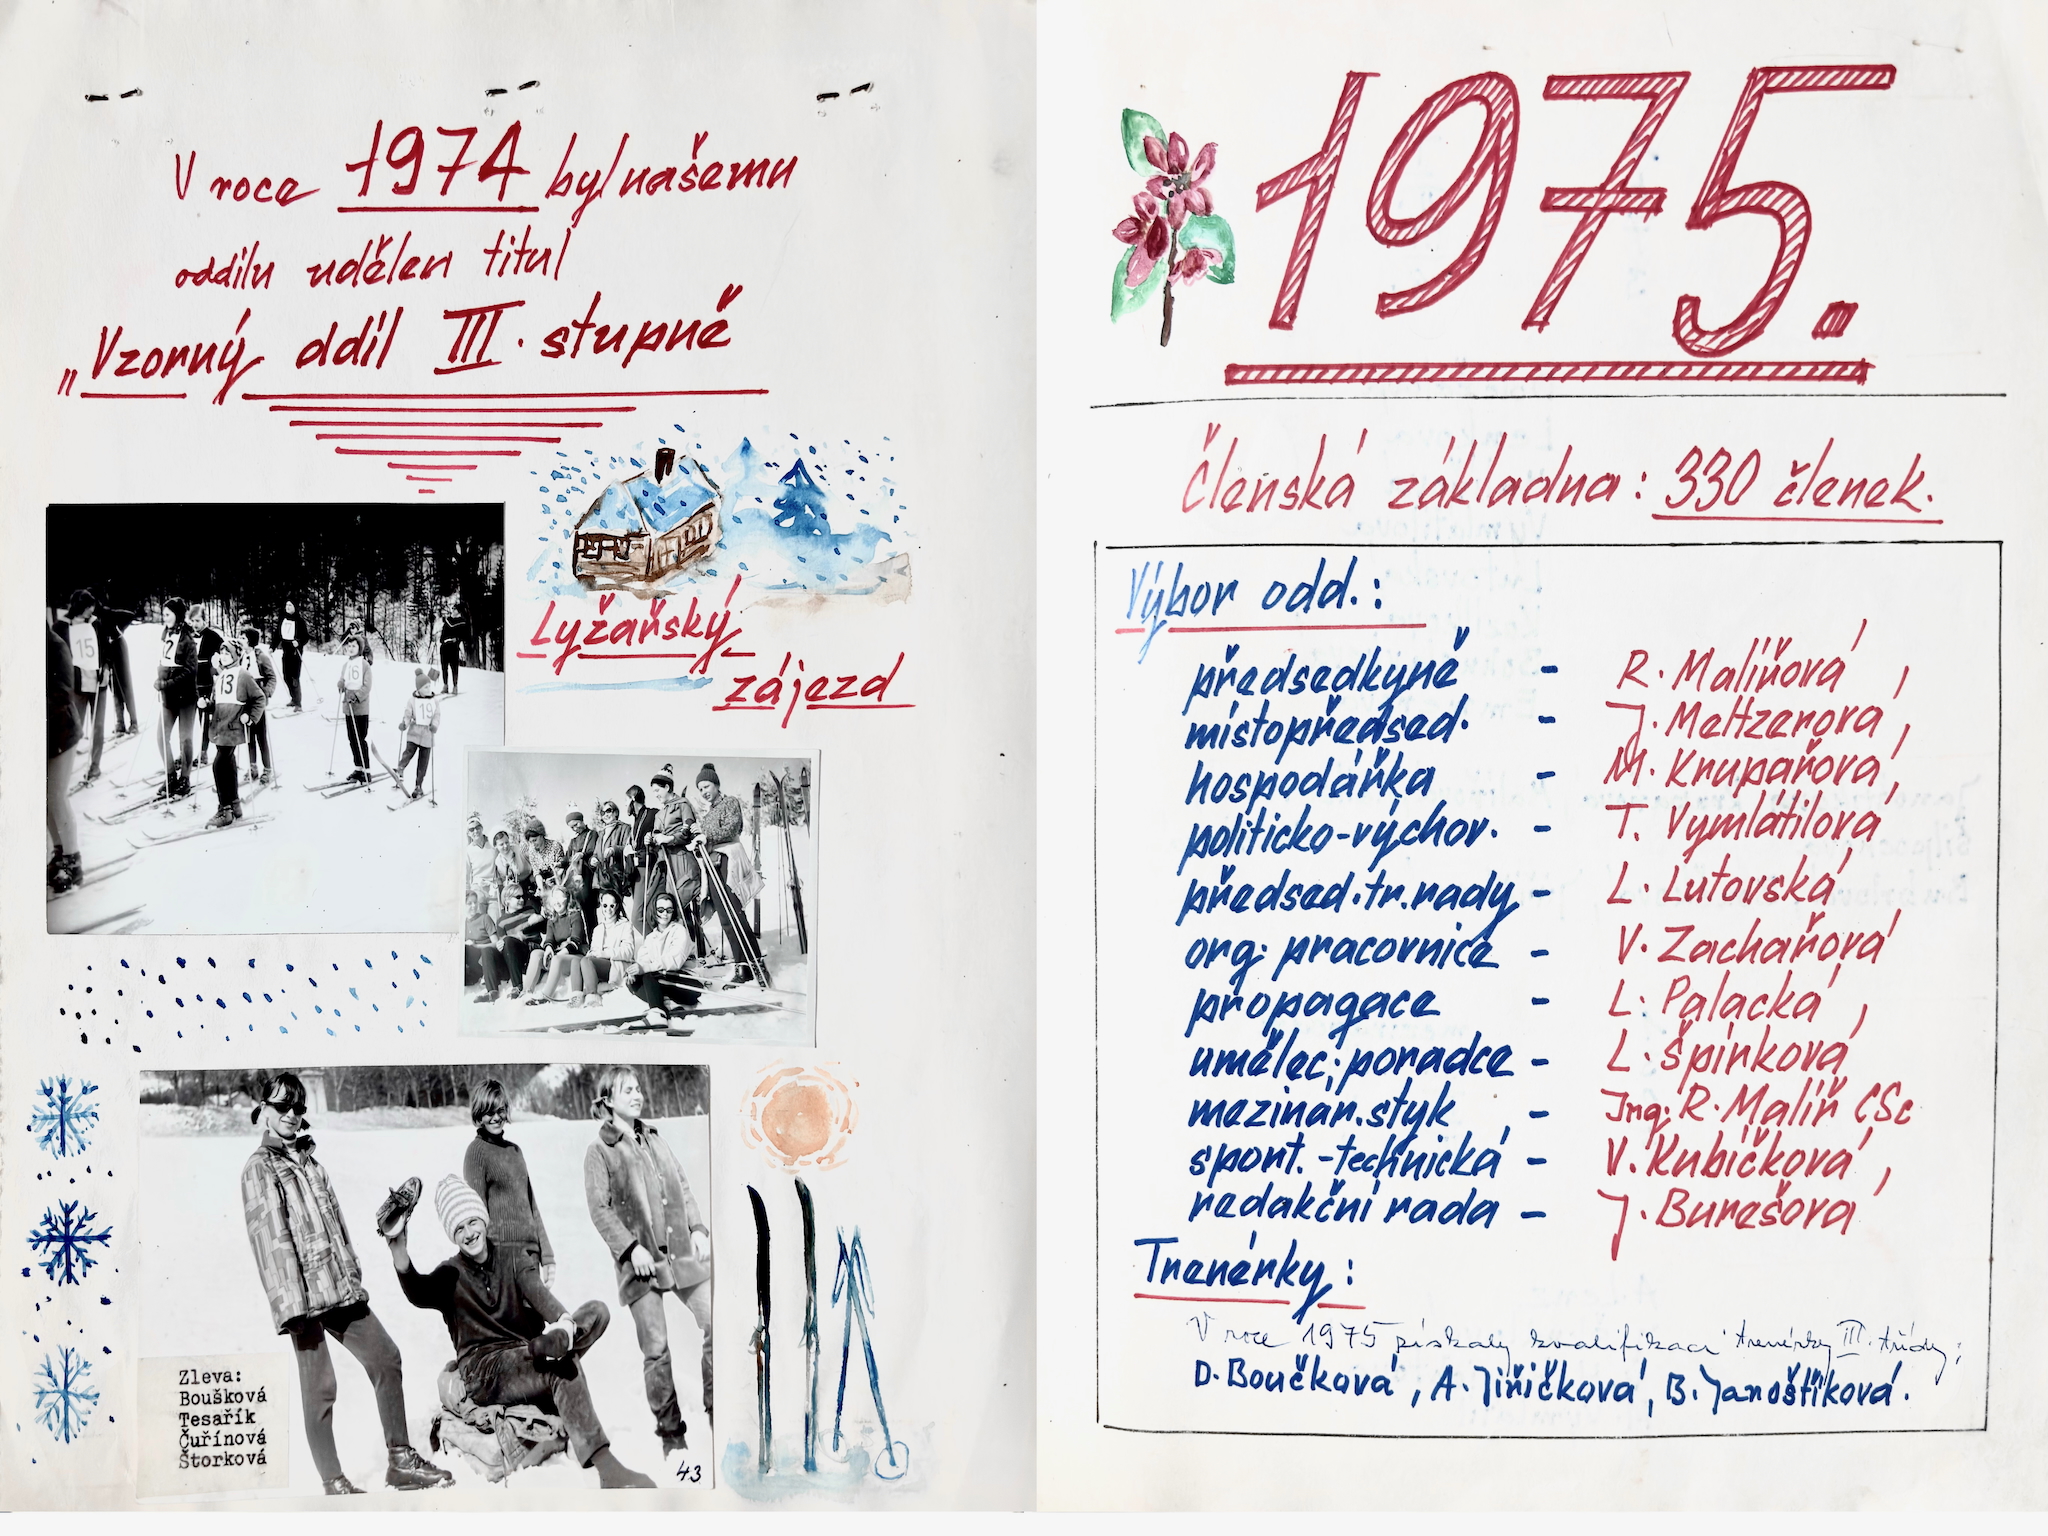 V roce 1974 byl našemu
oddílu udělen titul
„Vzorný ddíl III. stupně
Lyžařský
zájezd
15
12
13
16
19
Zleva:
Boušková
Tesařík
Čuřínová
Štorková
43
1975.
členská základna: 330 členek.
Výbor odd.:
předsedkyně - R. Malířová,
místopředsed. - J. Meltzerová,
hospodářka - M. Krupařová,
politicko-výchov. - T. Vymlátilová
předsed. tr. rady - L. Lutovská
org. pracovnice - V. Zachařová
propagace - L. Palacká,
umělec. poradce - L. Špinková
mezinár. styk - Ing. R. Malíř CSc
sport. - technická - V. Kubíčková,
redakční rada - J. Burešová
Trenérky:
V roce 1975 získaly kvalifikaci trenérky III. třídy:
D. Boučková, A. Jiříčková, B. Janoštíková.